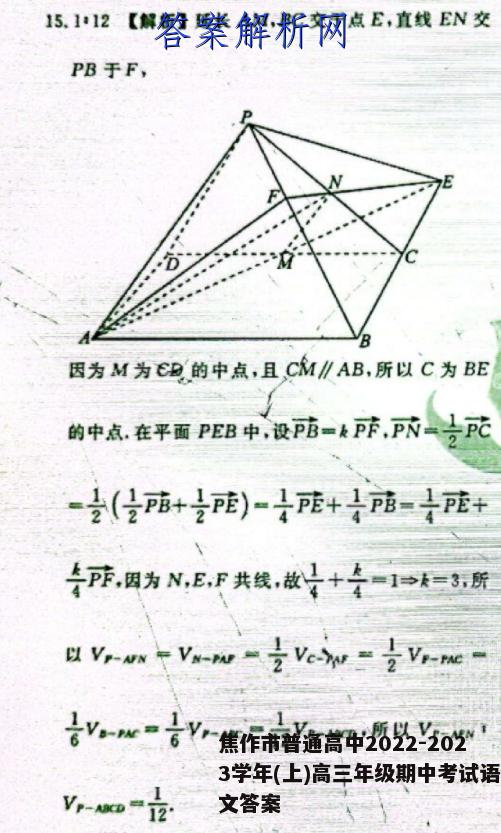 15. 1∶12 【解析】延长 AM, BC 交于点 E, 直线 EN 交
答案解析网
PB 于 F,
P
N
E
F
D
M
C
A
B
因为 M 为 CD 的中点, 且 CM∥AB, 所以 C 为 BE
的中点. 在平面 PEB 中, 设 $\overrightarrow{PB}=k\overrightarrow{PF}$, $\overrightarrow{PN}=\frac{1}{2}\overrightarrow{PC}$
$=\frac{1}{2}\left(\frac{1}{2}\overrightarrow{PB}+\frac{1}{2}\overrightarrow{PE}\right)=\frac{1}{4}\overrightarrow{PE}+\frac{1}{4}\overrightarrow{PB}=\frac{1}{4}\overrightarrow{PE}+$
$\frac{k}{4}\overrightarrow{PF}$, 因为 N, E, F 共线, 故 $\frac{1}{4}+\frac{k}{4}=1\Rightarrow k=3$, 所
以 $V_{P-AFN}=V_{N-PAF}=\frac{1}{2}V_{C-PAF}=\frac{1}{2}V_{F-PAC}=$
$\frac{1}{6}V_{B-PAC}=\frac{1}{6}$ 所以
焦作市普通高中2022-202
3学年(上)高三年级期中考试语
文答案
$V_{P-ABCD}=\frac{1}{12}$.